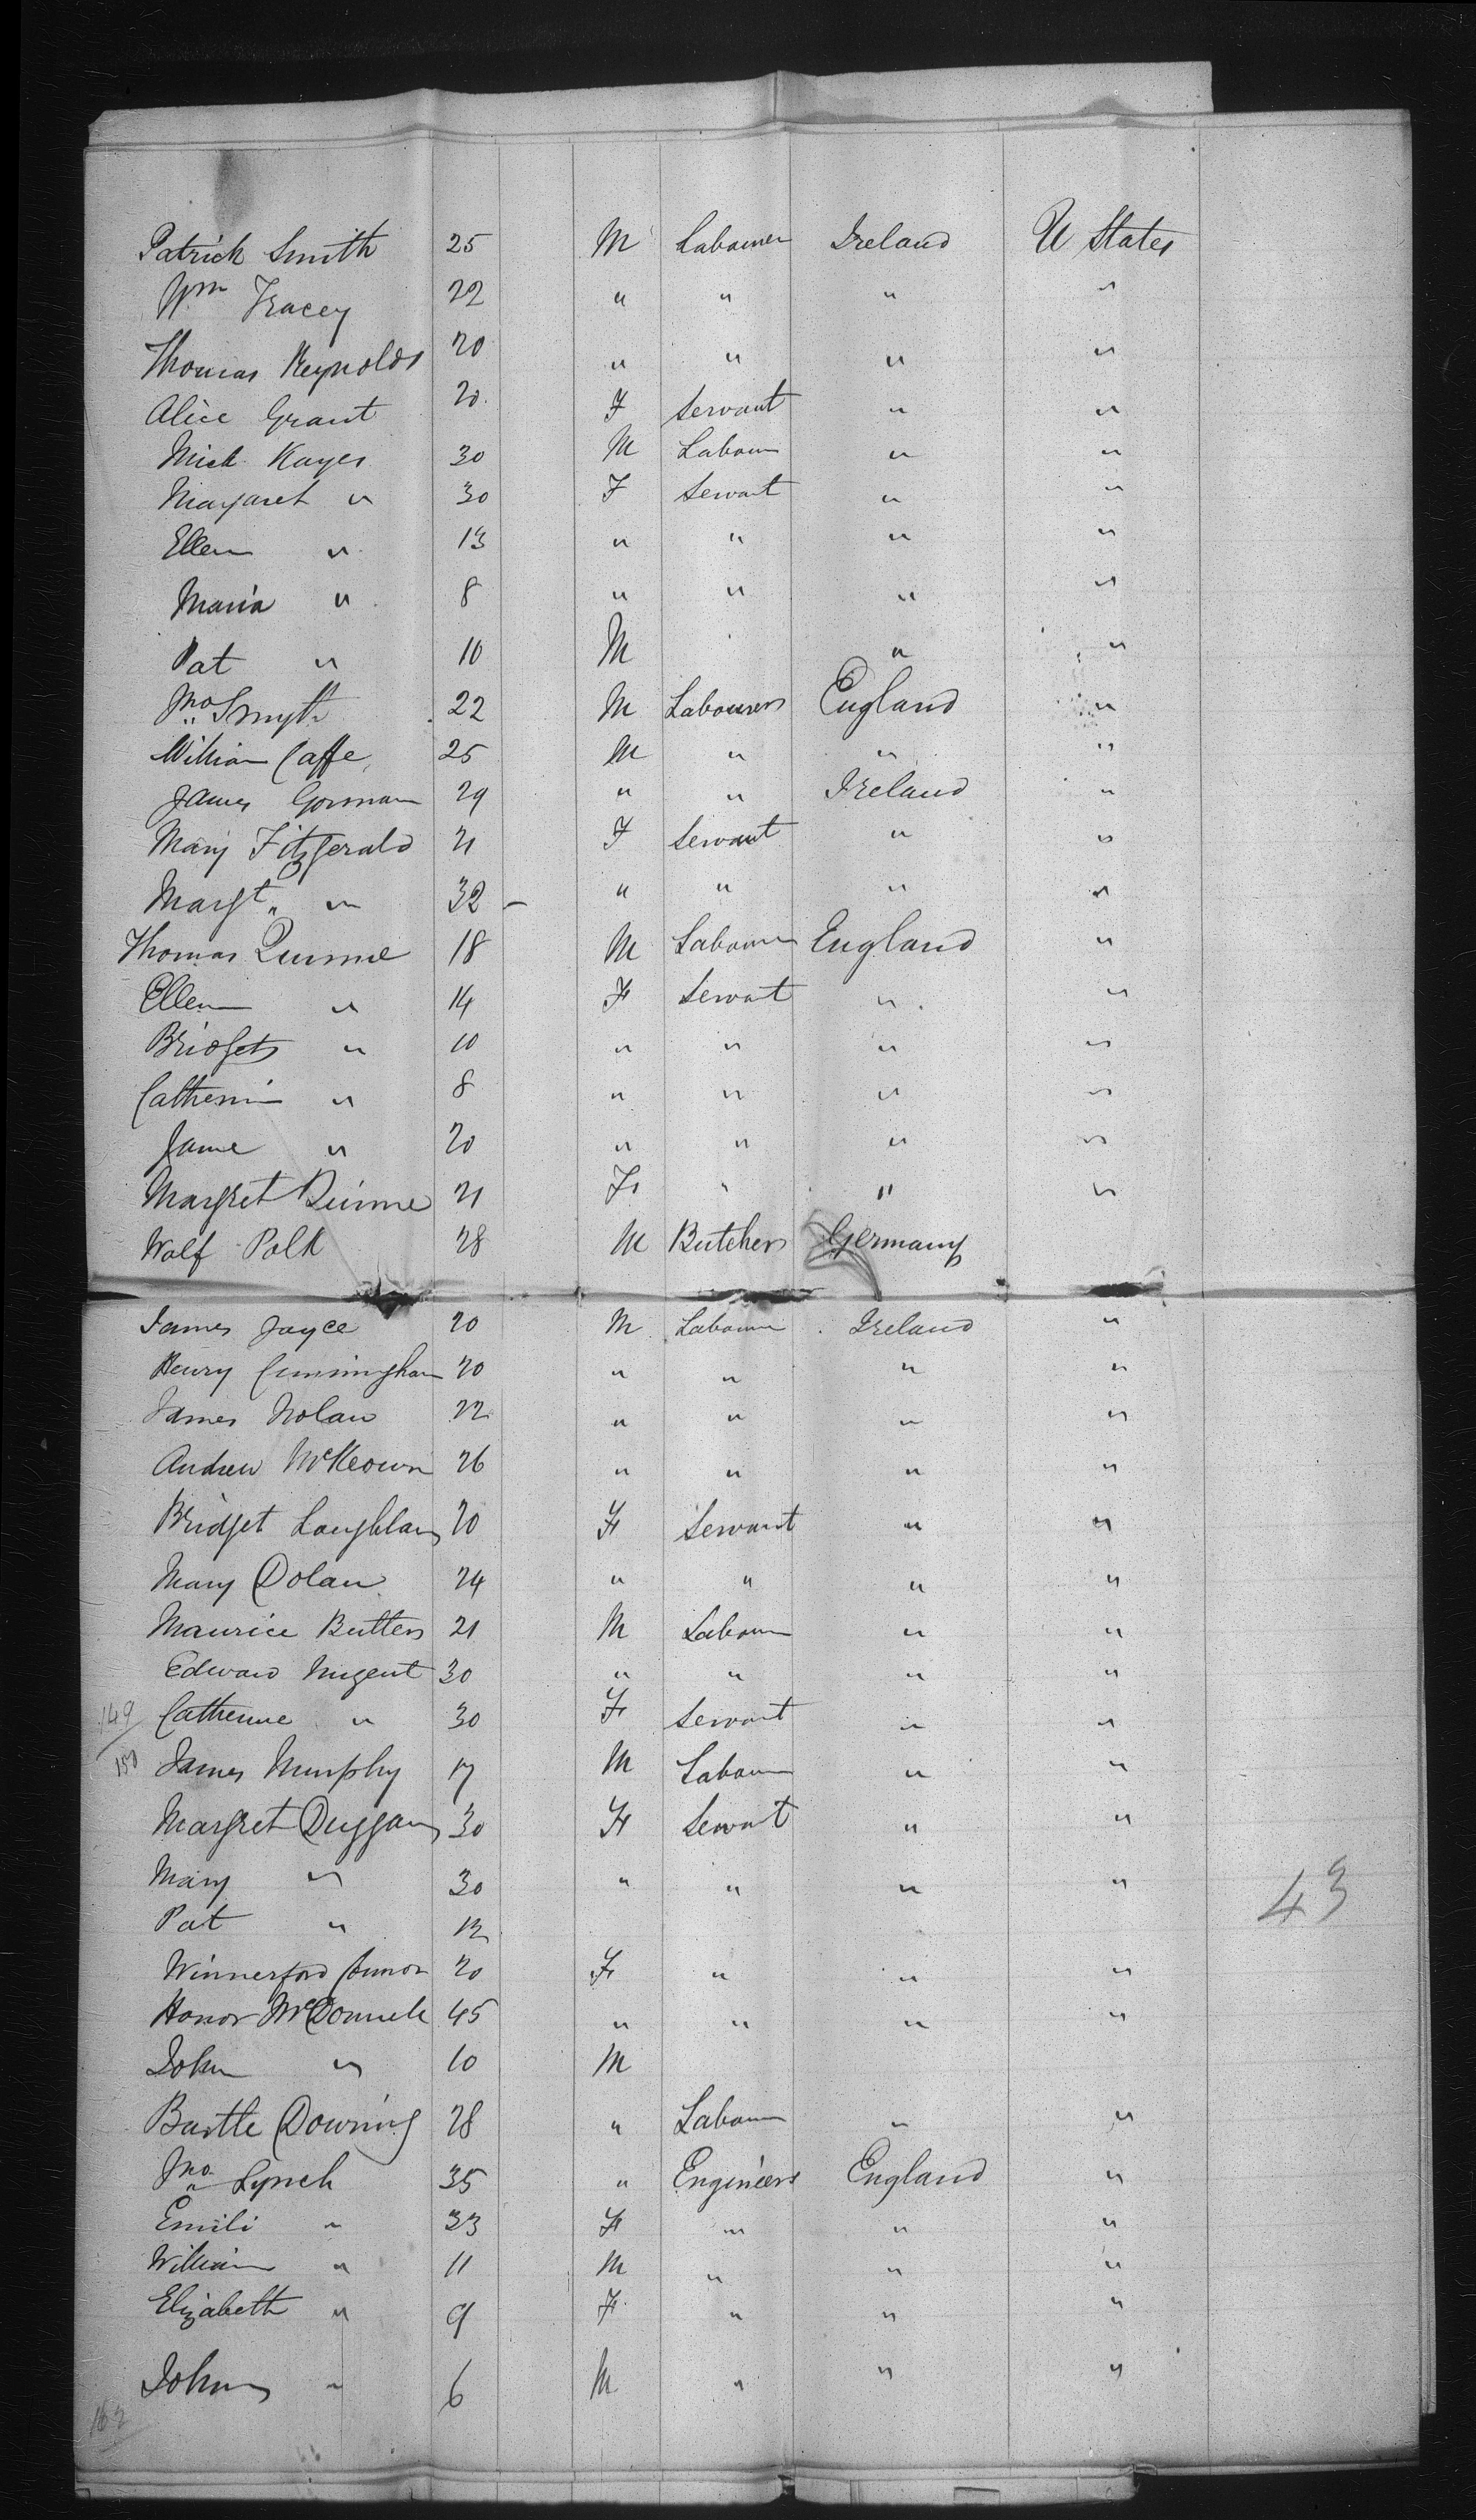 Patrick Smith 25 M Labourer Ireland U States
Wm Tracey 22 " " " "
Thomas Reynolds 20 " " " "
Alice Grant 20 F Servant " "
Mick Kayes 30 M Labour " "
Margaret " 30 F Servant " "
Ellen " 13 " " " "
Maria " 8 " " " "
Pat " 10 M " "
Jno Smyth 22 M Labourers England "
William Caffe 25 M " " "
James Gorman 29 " " Ireland "
Mary Fitzgerald 21 F Servant " "
Margt " 32 - " " " "
Thomas Quinne 18 M Labour England "
Ellen " 14 F Servant " "
Bridget " 10 " " " "
Catherin " 8 " " " "
Jane " 20 " " " "
Margret Quinne 21 F " " "
Wolf Polk 28 M Butcher Germany
James Joyce 20 M Labour Ireland "
Henry Cunningham 20 " " " "
James Nolan 22 " " " "
Andrew McKeown 26 " " " "
Bridget Loughlan 20 F Servant " "
Mary Dolan 24 " " " "
Maurice Butler 21 M Labour " "
Edward Nugent 30 " " " "
149 Catherine " 30 F Servant " "
150 James Murphy 17 M Labour " "
Margret Duggan 30 F Servant " "
Mary " 30 " " " "
43
Pat " 12
Winnerford Connor 20 F " " "
Honor McDonnele 45 " " " "
John " 10 M
Bartle Downing 28 " Labour " "
Jno Lynch 35 " Engineer England "
Emili " 33 F " " "
William " 11 M " " "
Elizabeth " 9 F " " "
John " 6 M " " "
162